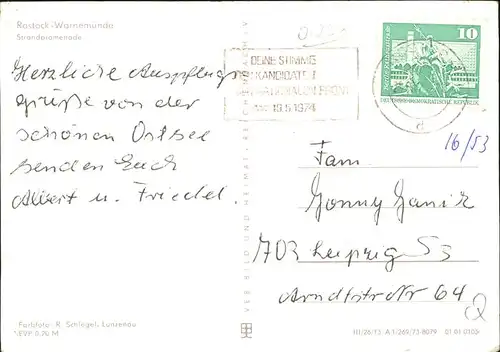 Rostock-Warnemünde
Strandpromenade
Herzliche Ausflugs-
grüße von der
schönen Ostsee
senden Euch
Albert u. Friedel.
DEINE STIMME
KANDIDATEN
NATIONALEN FRONT
19.5.1974
10
DEUTSCHE DEMOKRATISCHE REPUBLIK
16/53
Fam.
Conny Ganir
703 Leipzig 53
Arndtstr 64
VEB BILD UND HEIMAT REICHENBACH i. V.
Farbfoto: R. Schlegel, Lunzenau
EVP 0,20 M
III/26/13 A 1/269/73 8079 01 01 0103